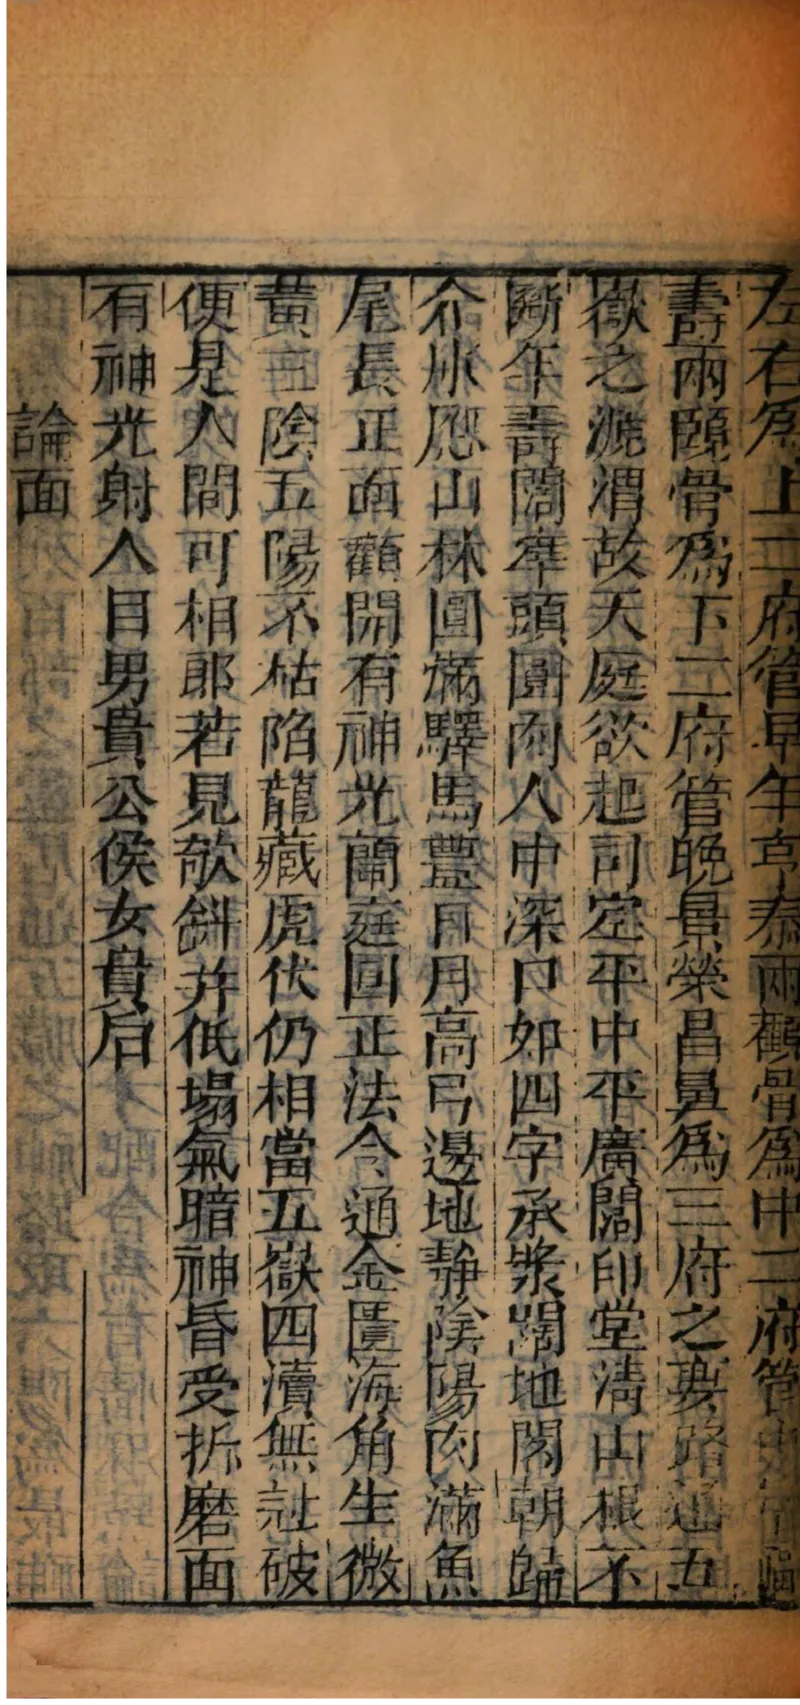 左右爲上二府管早年亨泰兩顴骨爲中二府管
壽兩頤骨爲下二府管晚景榮昌鼻爲三府之要路通五
嶽之漑渭故天庭欲起司空平中平廣闊印堂淸山根不
斷年壽闊凖頭圓肉人中深口如四字承漿闊地閣朝歸
仚冰應山林圓滿驛馬豐日月高弓邊地靜陰陽肉滿魚
尾長正面顴開有神光蘭庭回正法令通金匱海角生微
黃三陰五陽不枯陷龍藏虎伏仍相當五嶽四瀆無尅破
便是人間可相郎若見欹斜并低塌氣暗神昏受折磨面
有神光射人目男貴公侯女貴后
論面